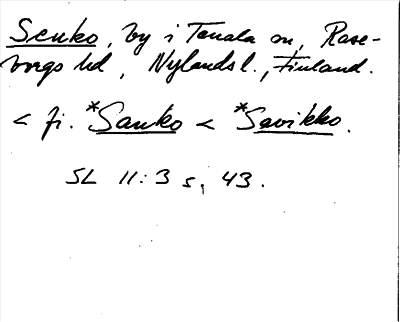 Senko, by i Tenala sn, Rase-
borgs hd, Nylands l., Finland.
< fi. *Sauko < *Savikko.
SL 11:3 s, 43.